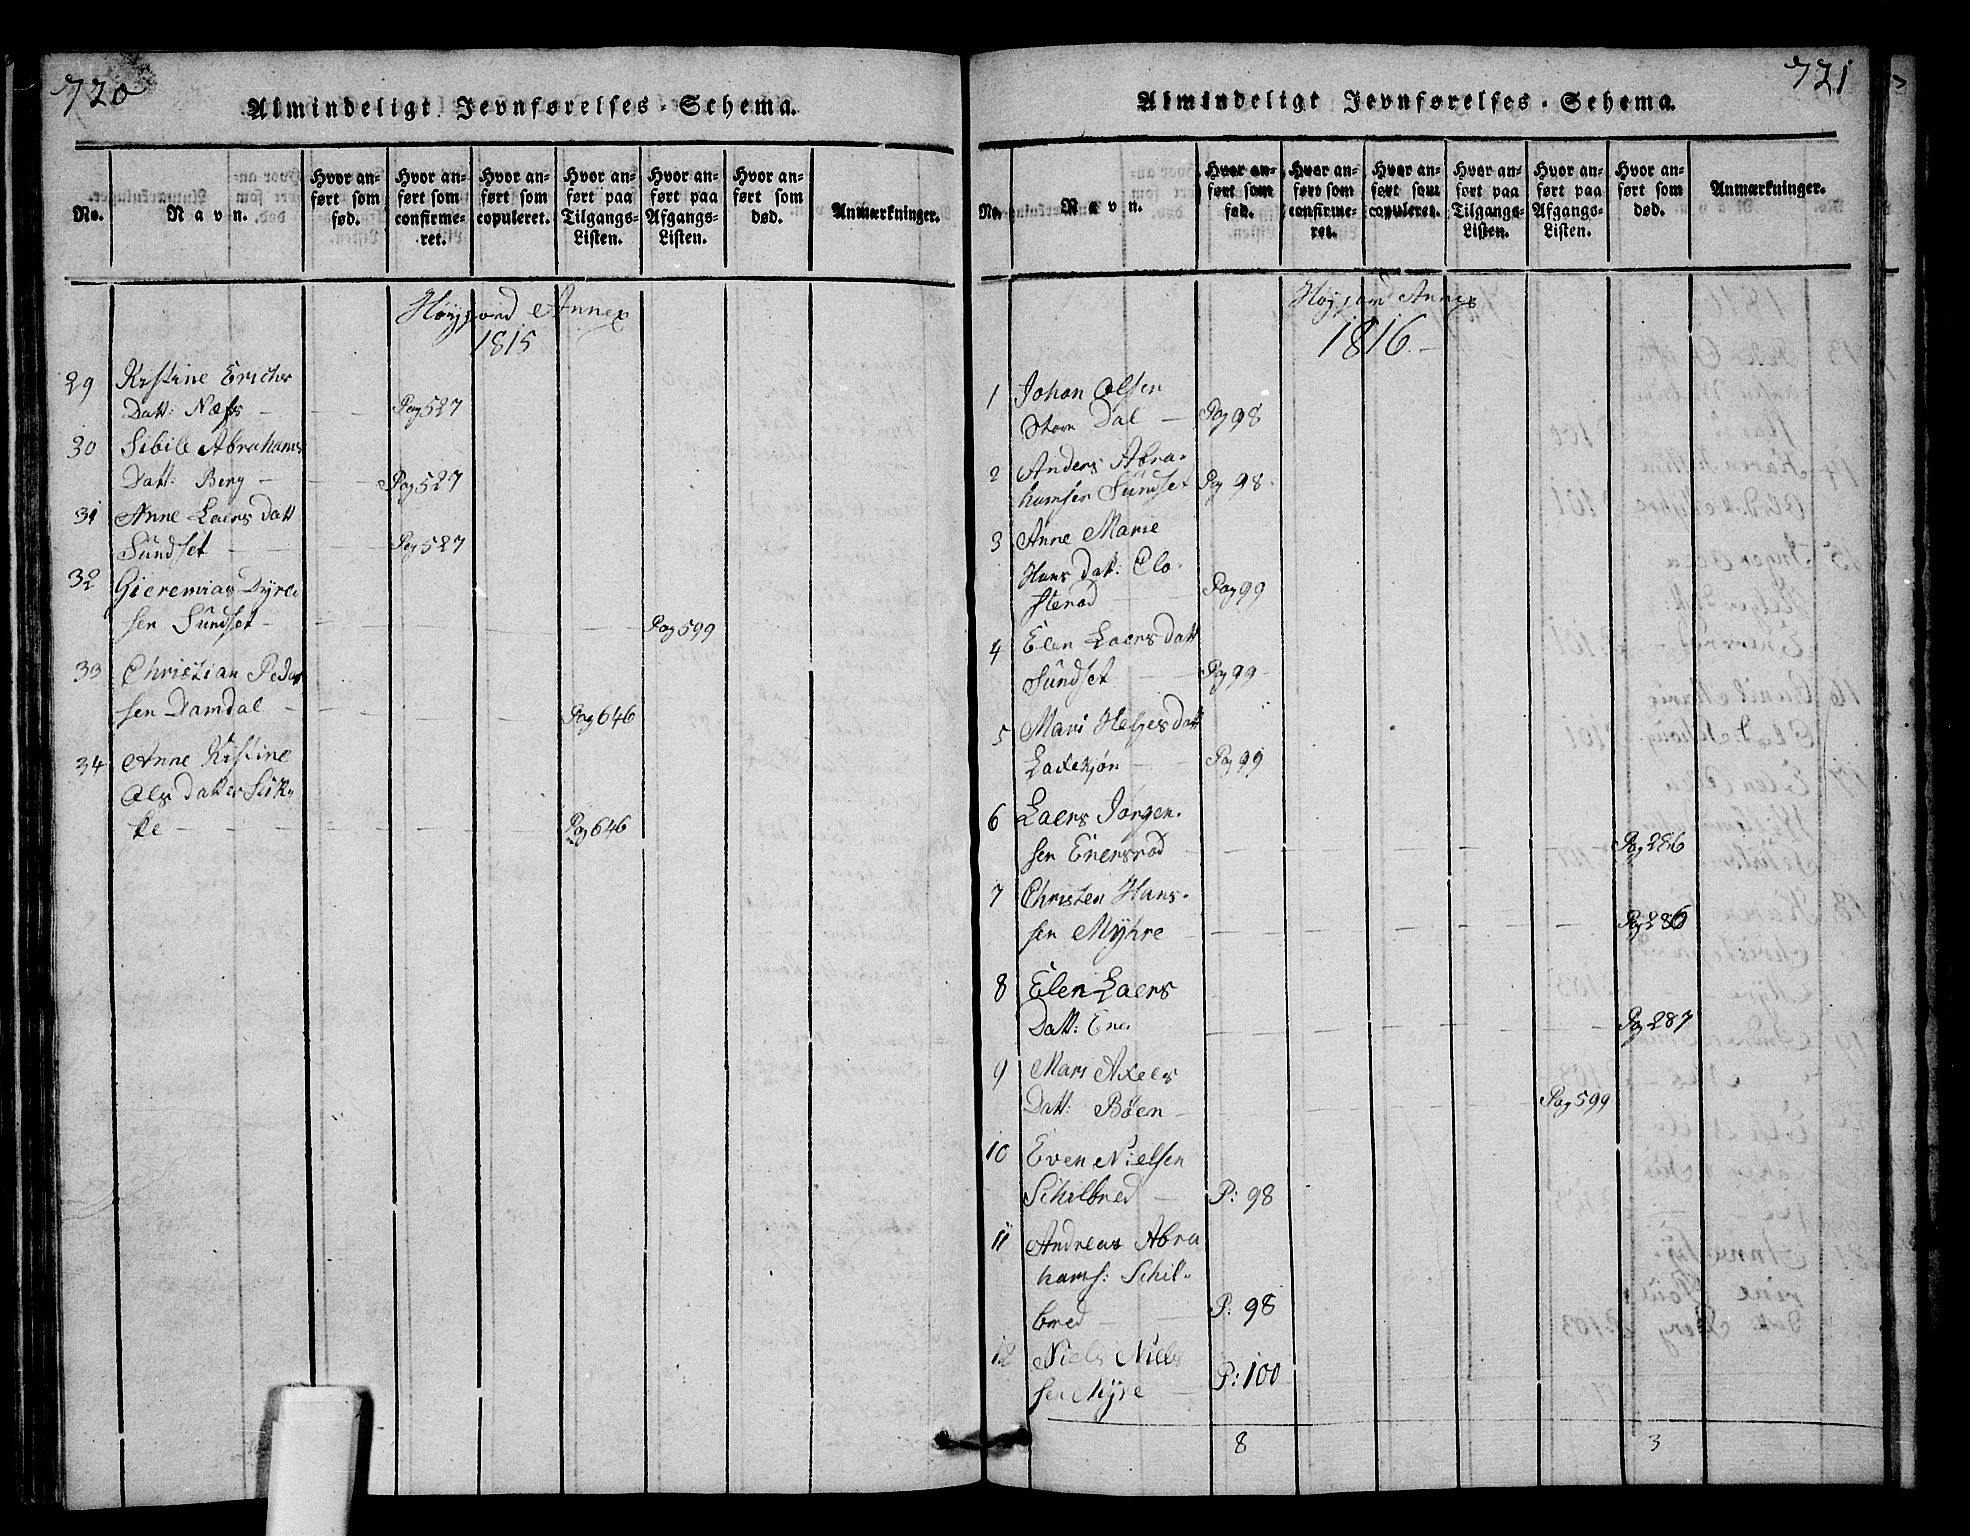 720
Almindeligt Jevnførelses-Schema.
No.
Navn.
Hvor an-
ført som
fød.
Hvor an-
ført som
confirme-
ret.
Hvor an-
ført som
copuleret.
Hvor an-
ført paa
Tilgangs-
Listen.
Hvor an-
ført paa
Afgangs-
Listen.
Hvor an-
ført som
død.
Anmærkninger.
Høyjord Annex
1815
29 Kistine Erichs
Datt: Næss - Pag 527
30 Sibile Abrahams
Datt: Berg - Pag 527
31 Anne Laers Datt
Sundset - Pag 527
32 Gieremias Dyre
sen Sundset - Pag 599
33 Christian Peder
sen Damdal - Pag 646
34 Anne Kistine
Ols Datter
ke - Pag 646
721
Almindeligt Jevnførelses-Schema.
No.
Navn.
Hvor an-
ført som
fød.
Hvor an-
ført som
confirme-
ret.
Hvor an-
ført som
copuleret.
Hvor an-
ført paa
Tilgangs-
Listen.
Hvor an-
ført paa
Afgangs-
Listen.
Hvor an-
ført som
død.
Anmærkninger.
Høyjord Annex
1816
1 Johan Olsen
Dal - Pag 98
2 Anders Abra-
hamsen Sundset Pag 98
3 Anne Marie
Hans Dat: Clo-
sterød Pag 99
4 Elen Laers Datt
Sundset - Pag 99
5 Mari Helges Datt
Laxekjøn - Pag 99
6 Laers Jorgen-
sen Enersrød Pag 286
7 Christen Hans-
sen Myhre - Pag 286
8 Elen Laers
Datt: Ener Pag 287
9 Mari Axels
Datt: Böen - Pag 599
10 Even Nielsen
Schilbred - P: 98
11 Andreas Abra
hams: Schil-
bred - P: 98
12 Niels Niels
sen Myre - P: 100
8 3